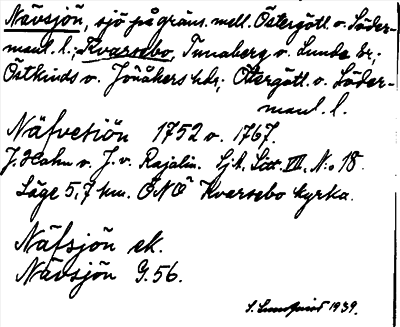 Nävsjön, sjö på gräns. mell. Östergötl. o. Söder-
manl. l.; Kvarsebo, Tunaberg o. Lunda sr;
Östkinds o. Jönåkers hdr; Östergötl. o. Söder-
manl. l.
Näfvesiön 1752 o. 1767.
J. Hahn o. J. v. Rajalin. Sjk. Sect. VII. N:o 18.
Läge 5,7 km. ÖNÖ Kvarsebo kyrka.
Näfsjön ek.
Nävsjön G. 56.
S. Lundqvist 1939.